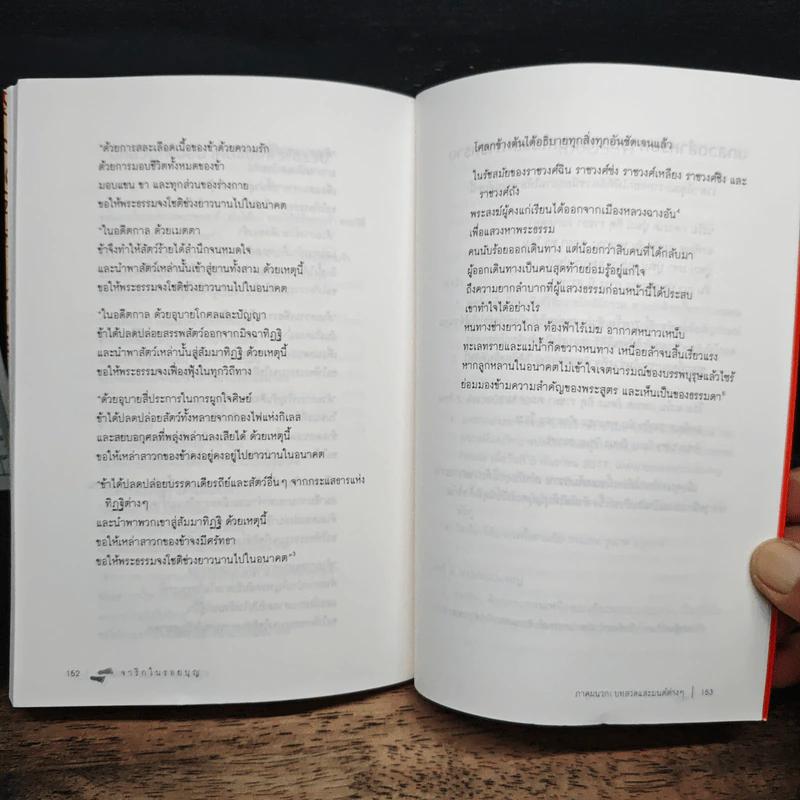 "ด้วยการสละเลือดเนื้อของข้าด้วยความรัก
ด้วยการมอบชีวิตทั้งหมดของข้า
มอบแขน ขา และทุกส่วนของร่างกาย
ขอให้พระธรรมจงโชติช่วงยาวนานไปในอนาคต
"ในอดีตกาล ด้วยเมตตา
ข้าจึงทำให้สัตว์ร้ายได้สำนึกจนหมดใจ
และนำพาสัตว์เหล่านั้นเข้าสู่ยานทั้งสาม ด้วยเหตุนี้
ขอให้พระธรรมจงโชติช่วงยาวนานไปในอนาคต
"ในอดีตกาล ด้วยอุบายโกศลและปัญญา
ข้าได้ปลดปล่อยสรรพสัตว์ออกจากมิจฉาทิฏฐิ
และนำพาสัตว์เหล่านั้นสู่สัมมาทิฏฐิ ด้วยเหตุนี้
ขอให้พระธรรมจงเฟื่องฟุ้งในทุกวิถีทาง
"ด้วยอุบายสี่ประการในการผูกใจศิษย์
ข้าได้ปลดปล่อยสัตว์ทั้งหลายจากกองไฟแห่งกิเลส
และสยบอกุศลที่พลุ่งพล่านลงเสียได้ ด้วยเหตุนี้
ขอให้เหล่าสาวกของข้าคงอยู่คงอยู่ไปยาวนานในอนาคต
"ข้าได้ปลดปล่อยบรรดาเดียรถีย์และสัตว์อื่นๆ จากกระแสธารแห่ง
ทิฏฐิต่างๆ
และนำพาพวกเขาสู่สัมมาทิฏฐิ ด้วยเหตุนี้
ขอให้เหล่าสาวกของข้าจงมีศรัทธา
ขอให้พระธรรมจงโชติช่วงยาวนานไปในอนาคต"³
152 จาริกในรอยบุญ
โศลกข้างต้นได้อธิบายทุกสิ่งทุกอันชัดเจนแล้ว
ในรัชสมัยของราชวงศ์ฉิน ราชวงศ์ซ่ง ราชวงศ์เหลียง ราชวงศ์ชิง และ
ราชวงศ์ถัง
พระสงฆ์ผู้คงแก่เรียนได้ออกจากเมืองหลวงฉางอัน⁴
เพื่อแสวงหาพระธรรม
คนนับร้อยออกเดินทาง แต่น้อยกว่าสิบคนที่ได้กลับมา
ผู้ออกเดินทางเป็นคนสุดท้ายย่อมรู้อยู่แก่ใจ
ถึงความยากลำบากที่ผู้แสวงธรรมก่อนหน้านี้ได้ประสบ
เขาทำใจได้อย่างไร
หนทางช่างยาวไกล ท้องฟ้าไร้เมฆ อากาศหนาวเหน็บ
ทะเลทรายและแม่น้ำกีดขวางหนทาง เหนื่อยล้าจนสิ้นเรี่ยวแรง
หากลูกหลานในอนาคตไม่เข้าใจเจตนารมณ์ของบรรพบุรุษแล้วไซร้
ย่อมมองข้ามความสำคัญของพระสูตร และเห็นเป็นของธรรมดา⁵
ภาคผนวก: บทสวดและมนต์ต่างๆ | 153